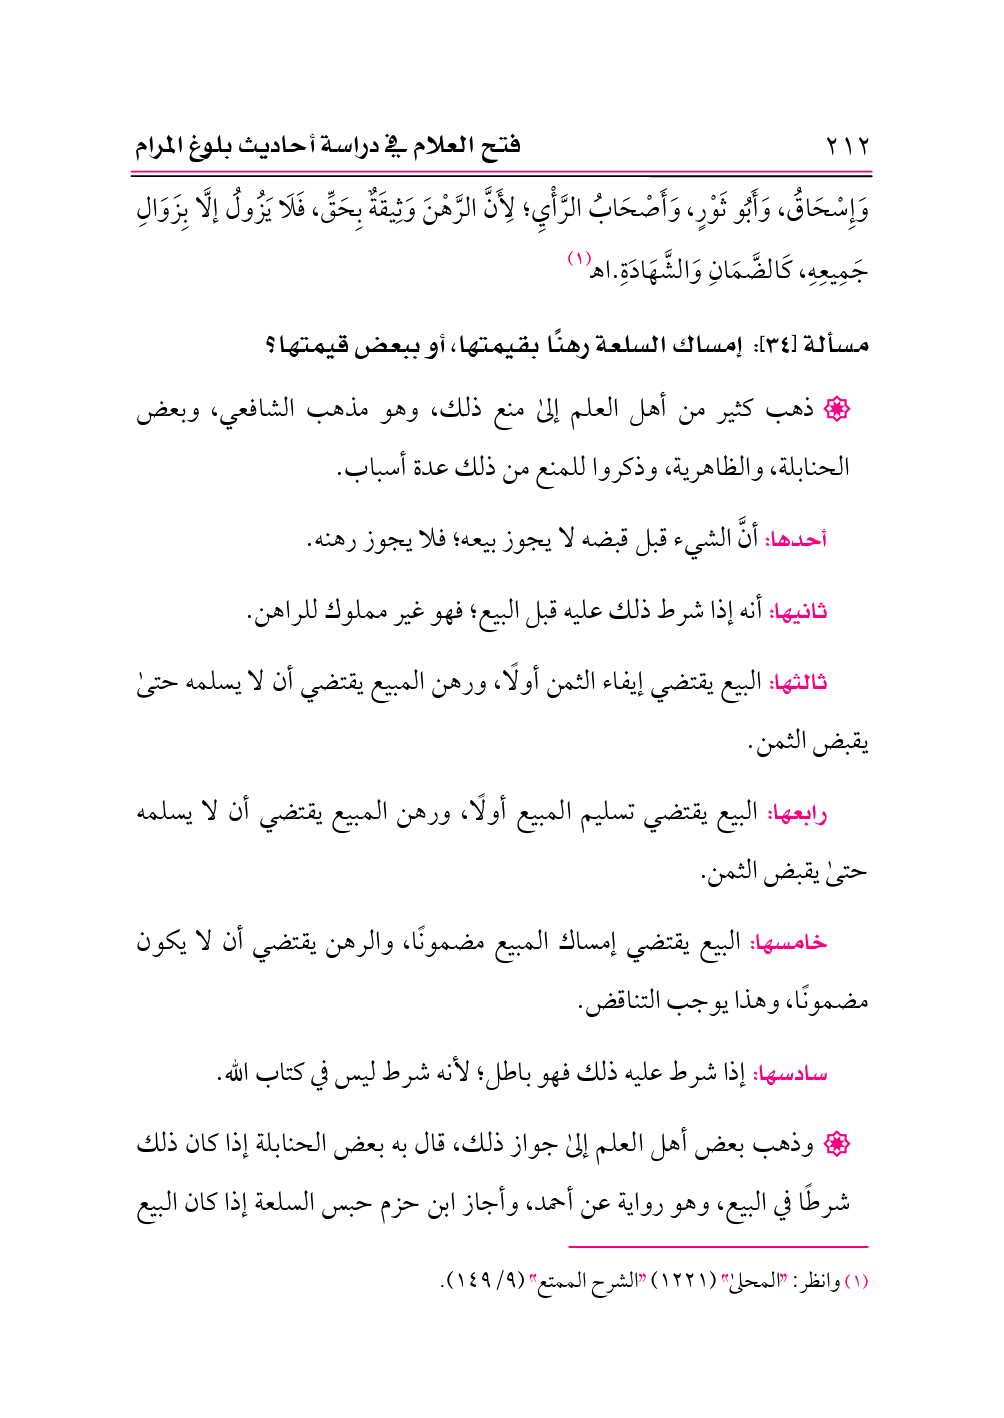 ٢١٢ فتح العلام في دراسة أحاديث بلوغ المرام
وَإِسْحَاقُ، وَأَبُو ثَوْرٍ، وَأَصْحَابُ الرَّأْيِ؛ لِأَنَّ الرَّهْنَ وَثِيقَةٌ بِحَقٍّ، فَلَا يَزُولُ إلَّا بِزَوَالِ
جَمِيعِهِ، كَالضَّمَانِ وَالشَّهَادَةِ.اهـ(١)
مسألة [٣٤]: إمساك السلعة رهنًا بقيمتها، أو ببعض قيمتها؟
ذهب كثير من أهل العلم إلىٰ منع ذلك، وهو مذهب الشافعي، وبعض
الحنابلة، والظاهرية، وذكروا للمنع من ذلك عدة أسباب.
أحدها: أنَّ الشيء قبل قبضه لا يجوز بيعه؛ فلا يجوز رهنه.
ثانيها: أنه إذا شرط ذلك عليه قبل البيع؛ فهو غير مملوك للراهن.
ثالثها: البيع يقتضي إيفاء الثمن أولًا، ورهن المبيع يقتضي أن لا يسلمه حتىٰ
يقبض الثمن.
رابعها: البيع يقتضي تسليم المبيع أولًا، ورهن المبيع يقتضي أن لا يسلمه
حتىٰ يقبض الثمن.
خامسها: البيع يقتضي إمساك المبيع مضمونًا، والرهن يقتضي أن لا يكون
مضمونًا، وهذا يوجب التناقض.
سادسها: إذا شرط عليه ذلك فهو باطل؛ لأنه شرط ليس في كتاب الله.
وذهب بعض أهل العلم إلىٰ جواز ذلك، قال به بعض الحنابلة إذا كان ذلك
شرطًا في البيع، وهو رواية عن أحمد، وأجاز ابن حزم حبس السلعة إذا كان البيع
(١) وانظر: "المحلىٰ" (١٢٢١) "الشرح الممتع" (٩/ ١٤٩).